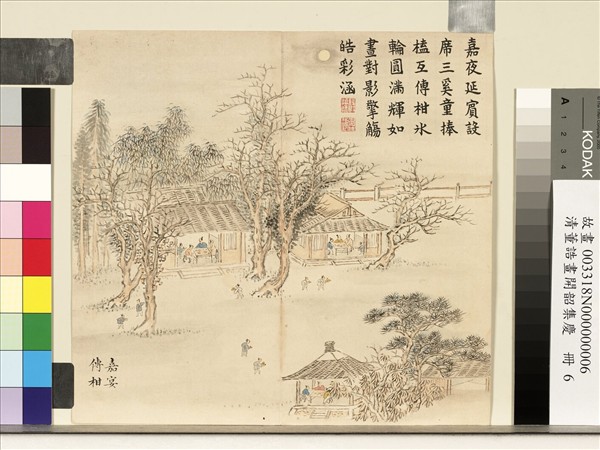 嘉夜延賓設
席三奚童捧
榼互傳柑冰
輪圓滿輝如
晝對影擎觴
皓彩涵
嘉宴
傳柑
KODAK
A 1 2 3 4
故畫003318N000000006
清董誥畫開韶集慶 冊 6